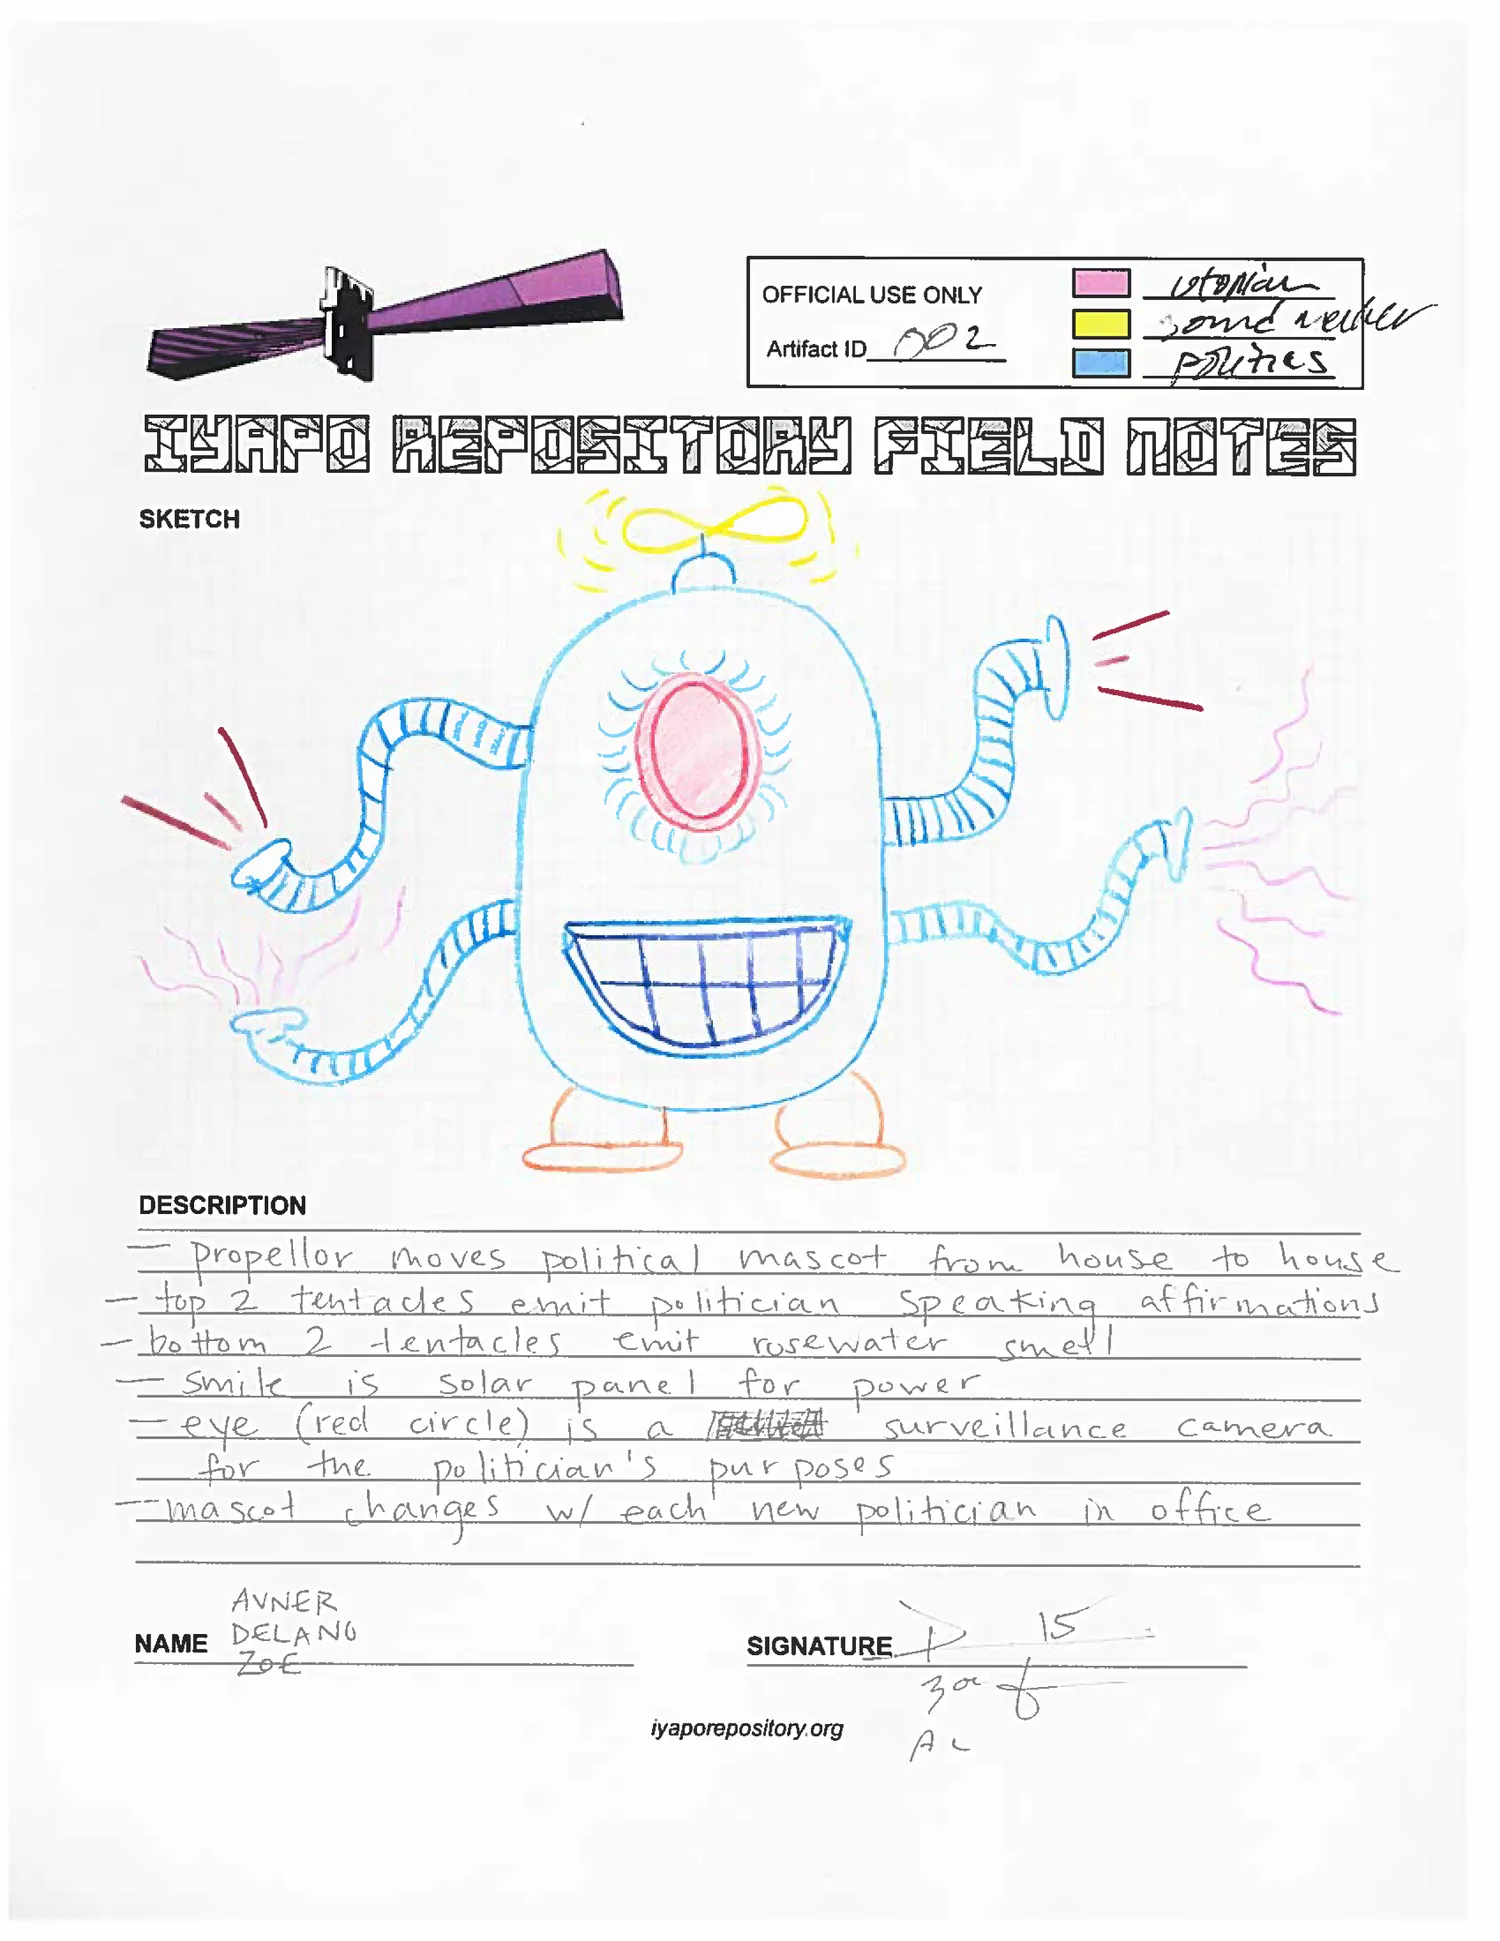 OFFICIAL USE ONLY
Artifact ID 002
utopian
politics
IYAPO REPOSITORY FIELD NOTES
SKETCH
DESCRIPTION
— propellor moves political mascot from house to house
— top 2 tentacles emit politician speaking affirmations
— bottom 2 tentacles emit rosewater smell
— smile is solar panel for power
— eye (red circle) is a surveillance camera
for the politician's purposes
— mascot changes w/ each new politician in office
AVNER
NAME DELANO
ZOE
SIGNATURE
iyaporepository.org